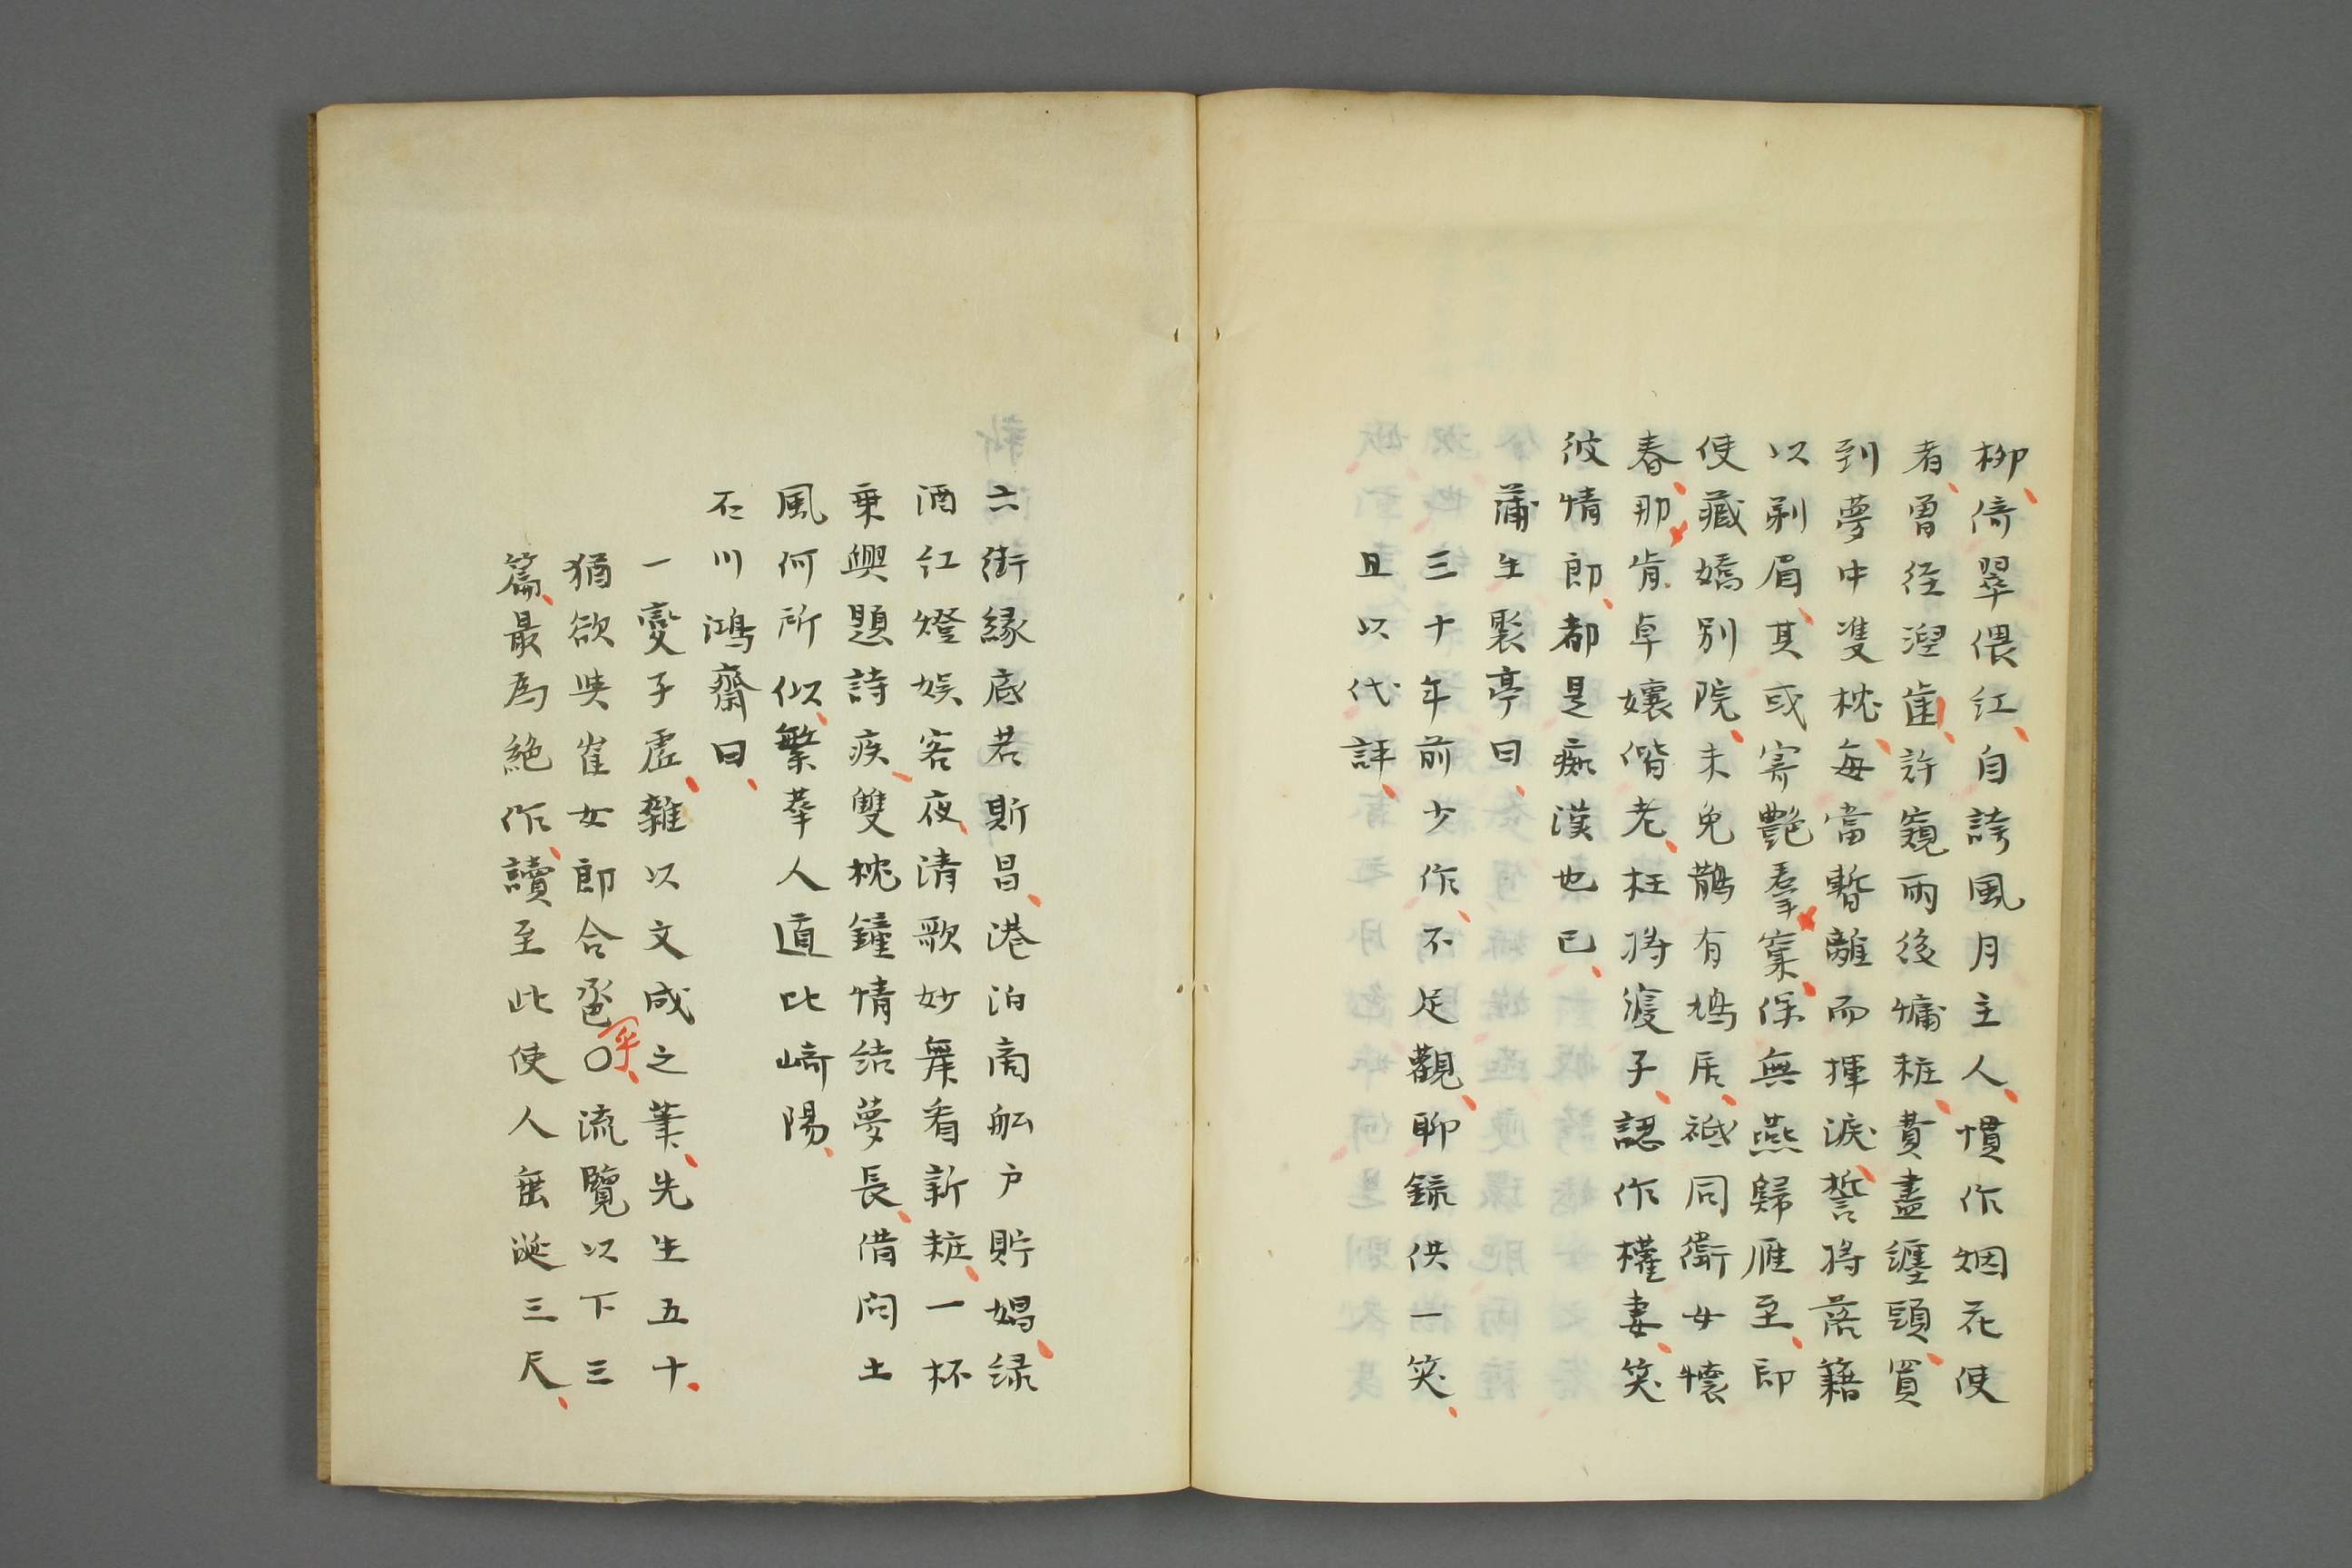 柳、倚翠偎紅、自誇風月主人、慣作烟花使
者、曾經湼齒、許窺雨後慵粧、費盡纏頭、買
到夢中雙枕、每當暫離而揮淚、誓將落籍
以剃眉、其或寄艷羣寨、保無燕歸雁至、即
使藏嬌別院、未免鵲有鳩居、祗同衛女懷
春、那肯卓孃偕老、枉將瘦子、認作權妻、笑
彼情郎、都是痴漢也已、
蒲生褧亭曰、
三十年前少作、不足觀、聊錄供一笑、
且以代評、
六街緣底若斯昌、港泊商舩戶貯娼、绿
酒紅燈娛客夜、清歌妙舞看新粧、一杯
乗興題詩疾、雙枕鐘情結夢長、借問土
風何所似、繁華人道比崎陽、
石川鴻齋曰、
一變子虛、雜以文成之葉、先生五十
猶欲與崔女郎合巹乎、流覽以下三
篇、最為絕作、讀至此使人垂涎三尺、